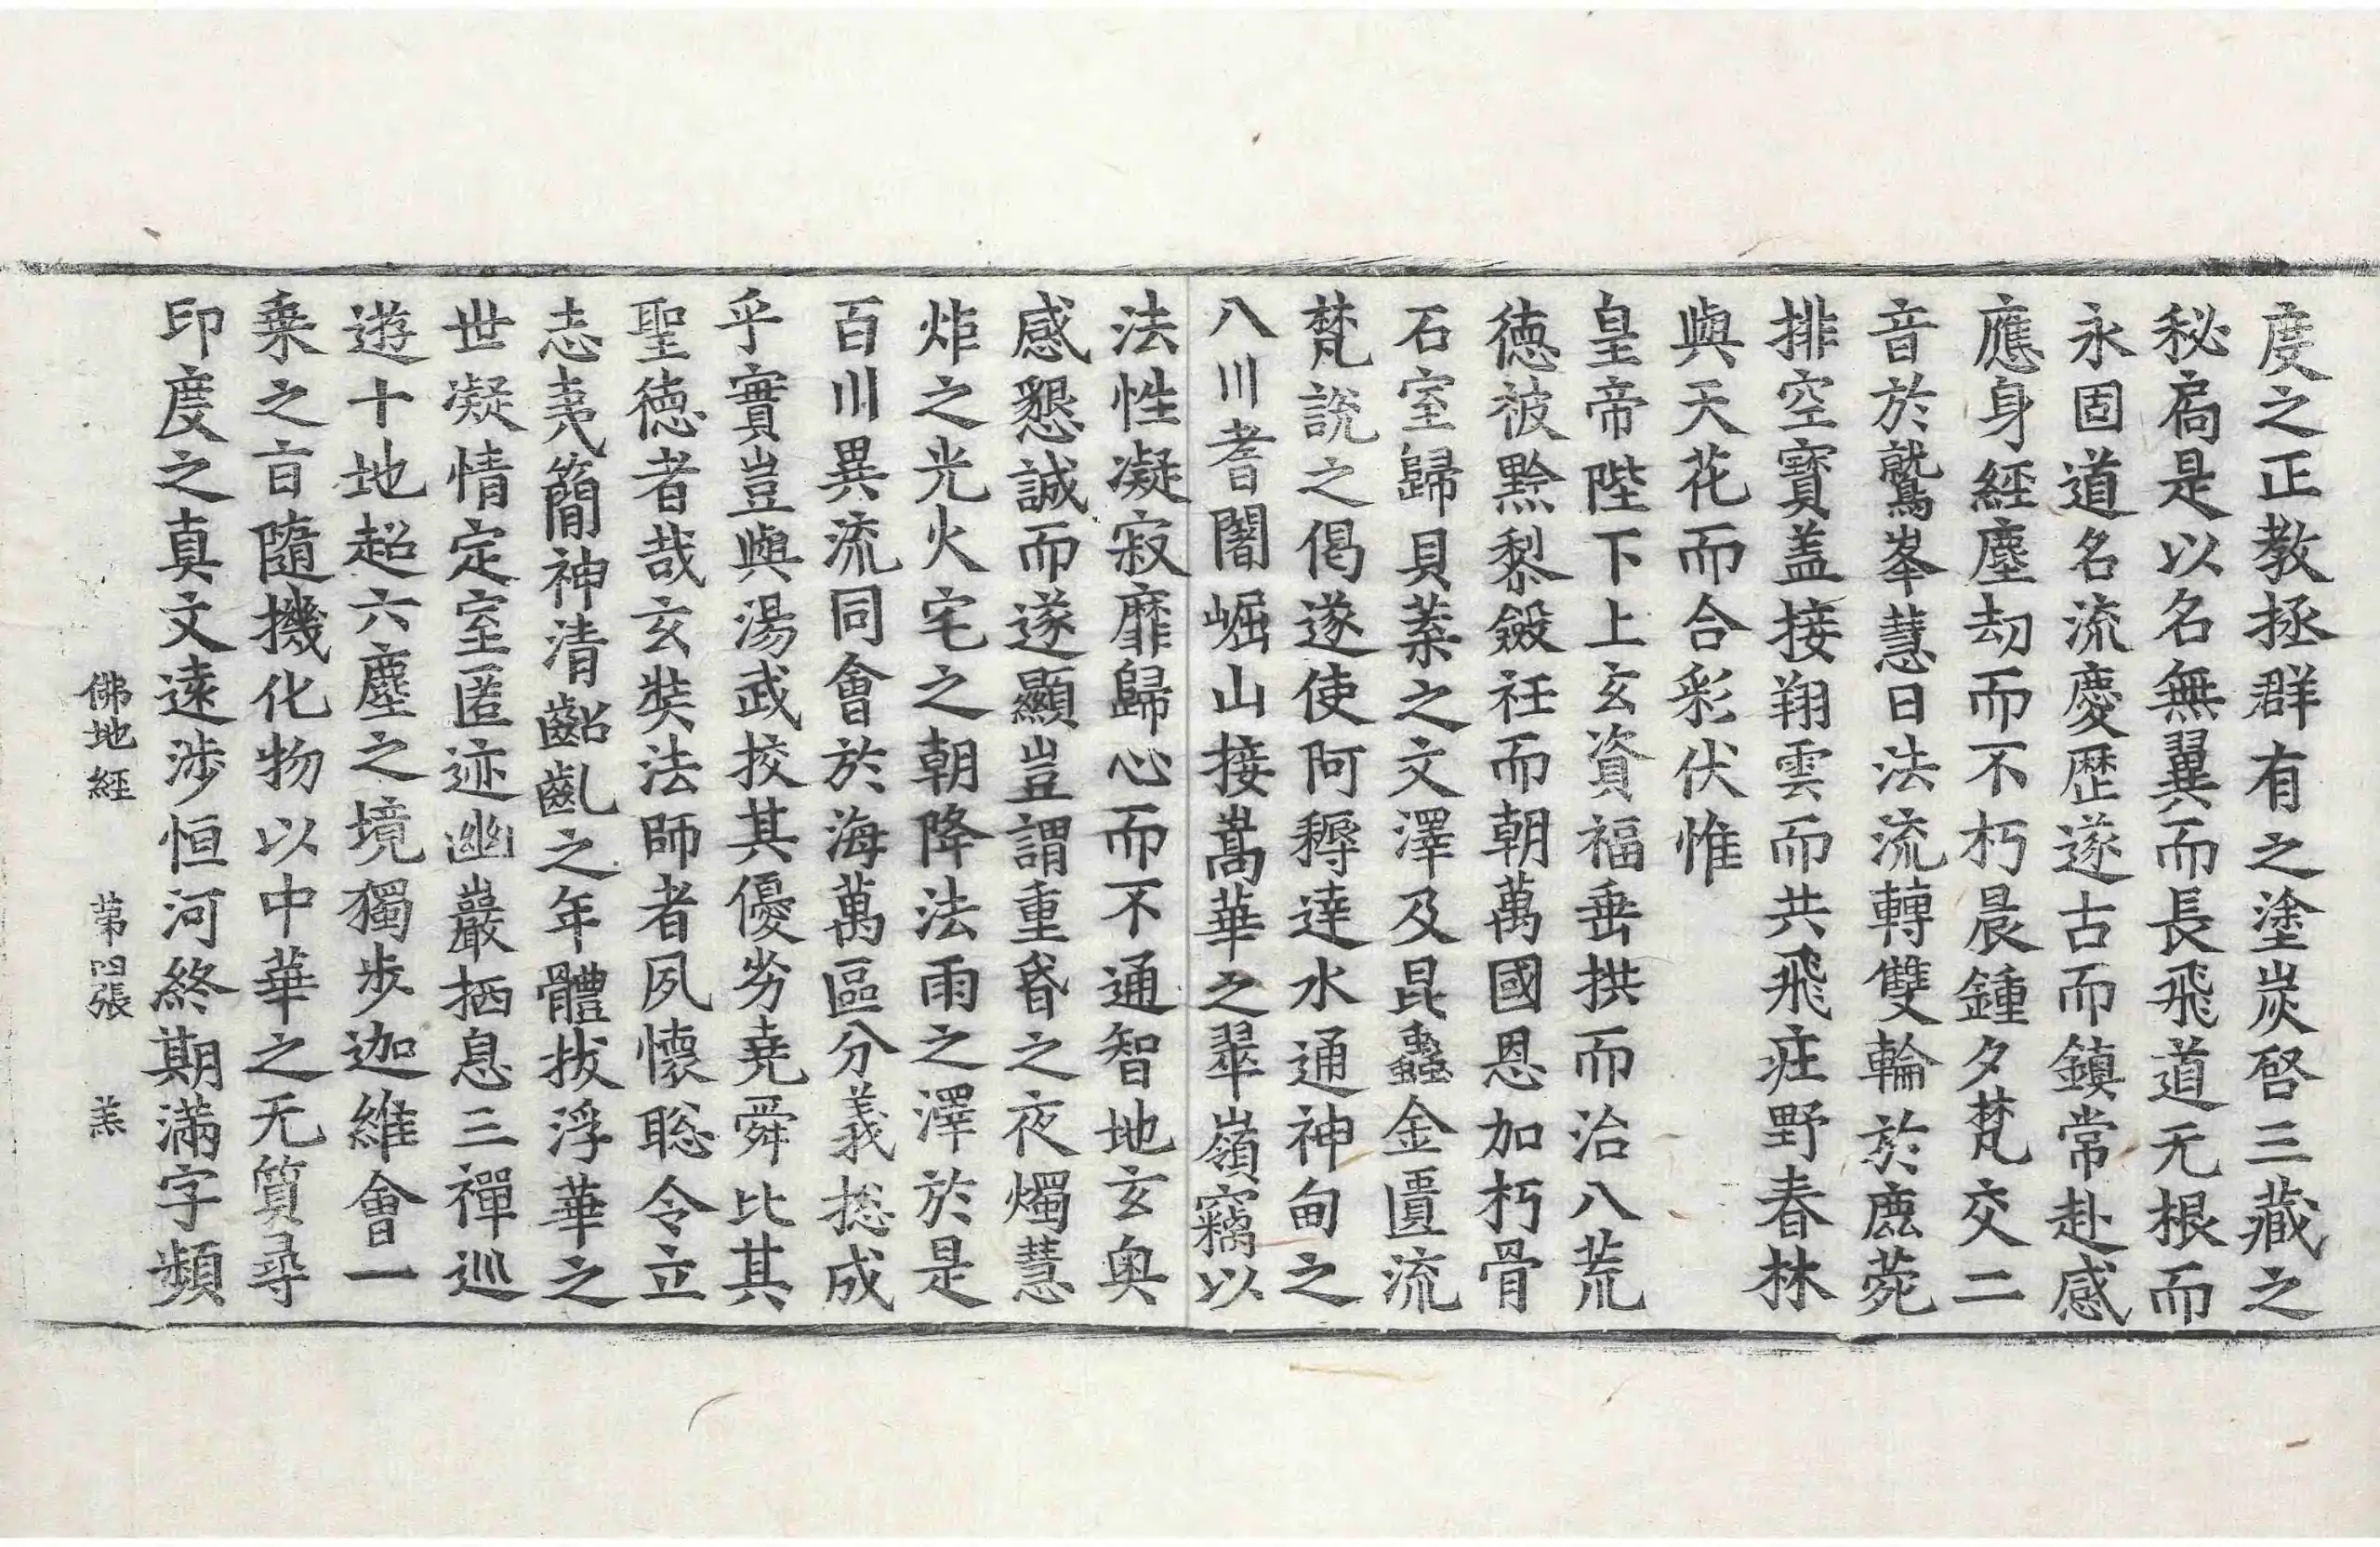 度之正教拯群有之塗炭啓三藏之
秘扃是以名無翼而長飛道无根而
永固道名流慶歷遂古而鎮常赴感
應身經塵劫而不朽晨鍾夕梵交二
音於鷲峯慧日法流轉雙輪於鹿菀
排空寶盖接翔雲而共飛疰野春林
與天花而合彩伏惟
皇帝陛下上玄資福垂拱而治八荒
德被黔黎斂衽而朝萬國恩加朽骨
石室歸貝葉之文澤及昆蟲金匱流
梵說之偈遂使阿耨達水通神甸之
八川耆闍崛山接嵩華之翠嶺竊以
法性凝寂靡歸心而不通智地玄奥
感懇誠而遂顯豈謂重昏之夜燭慧
炬之光火宅之朝降法雨之澤於是
百川異流同會於海萬區分義捴成
乎實豈與湯武挍其優劣堯舜比其
聖德者哉玄奘法師者夙懷聡令立
志夷簡神清齠齓之年體拔浮華之
世凝情定室匿迹幽巖栖息三禪巡
遊十地超六塵之境獨步迦維會一
乗之旨隨機化物以中華之无質尋
印度之真文遠涉恒河終期滿字頻
佛地經 第四張 羔